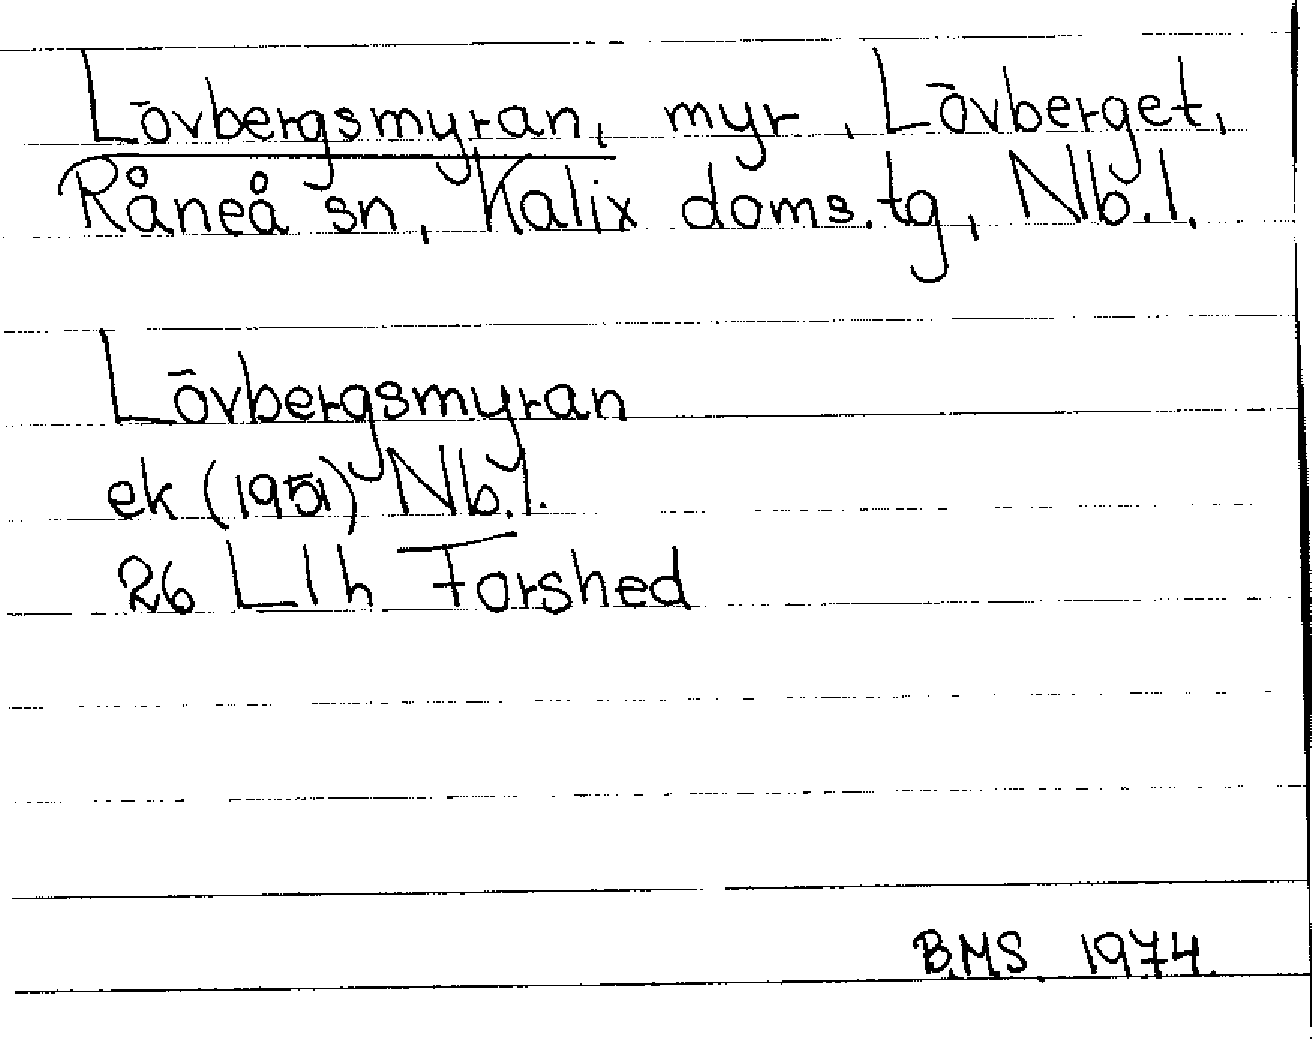 Lövbergsmyran, myr, Lövberget,
Råneå sn, Kalix doms.tg, Nb.l.
Lövbergsmyran
ek (1951) Nb.l.
26 L1h Forshed
B.M.S. 1974.